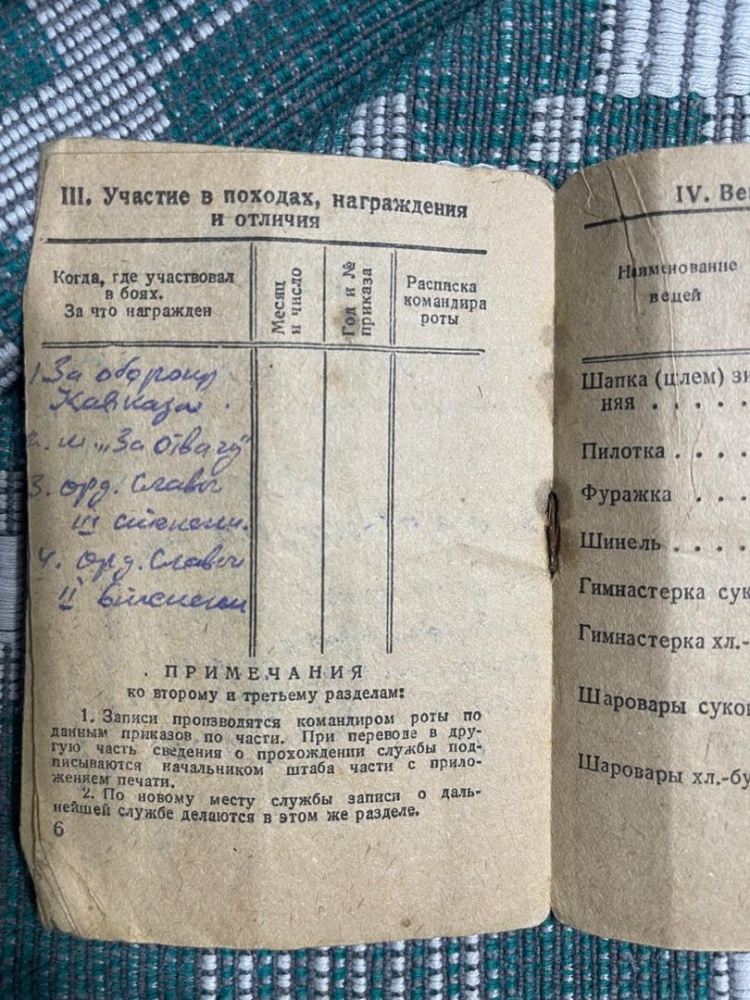 III. Участие в походах, награждения
и отличия
Когда, где участвовал
в боях.
За что награжден
Месяц
и число
Год и №
приказа
Расписка
командира
роты
1. За оборону
Кавказа.
2. м. „За отвагу"
3. орд. Славы
III степени.
4. орд. Славы
II степени
ПРИМЕЧАНИЯ
ко второму и третьему разделам:
1. Записи производятся командиром роты по
данным приказов по части. При переводе в дру-
гую часть сведения о прохождении службы под-
писываются начальником штаба части с прило-
жением печати.
2. По новому месту службы записи о даль-
нейшей службе делаются в этом же разделе.
6
IV. Ве
Наименование
вещей
Шапка (шлем) зи
няя . . . .
Пилотка . . . .
Фуражка . . .
Шинель . . . .
Гимнастерка сук
Гимнастерка хл.-
Шаровары суко
Шаровары хл.-бу